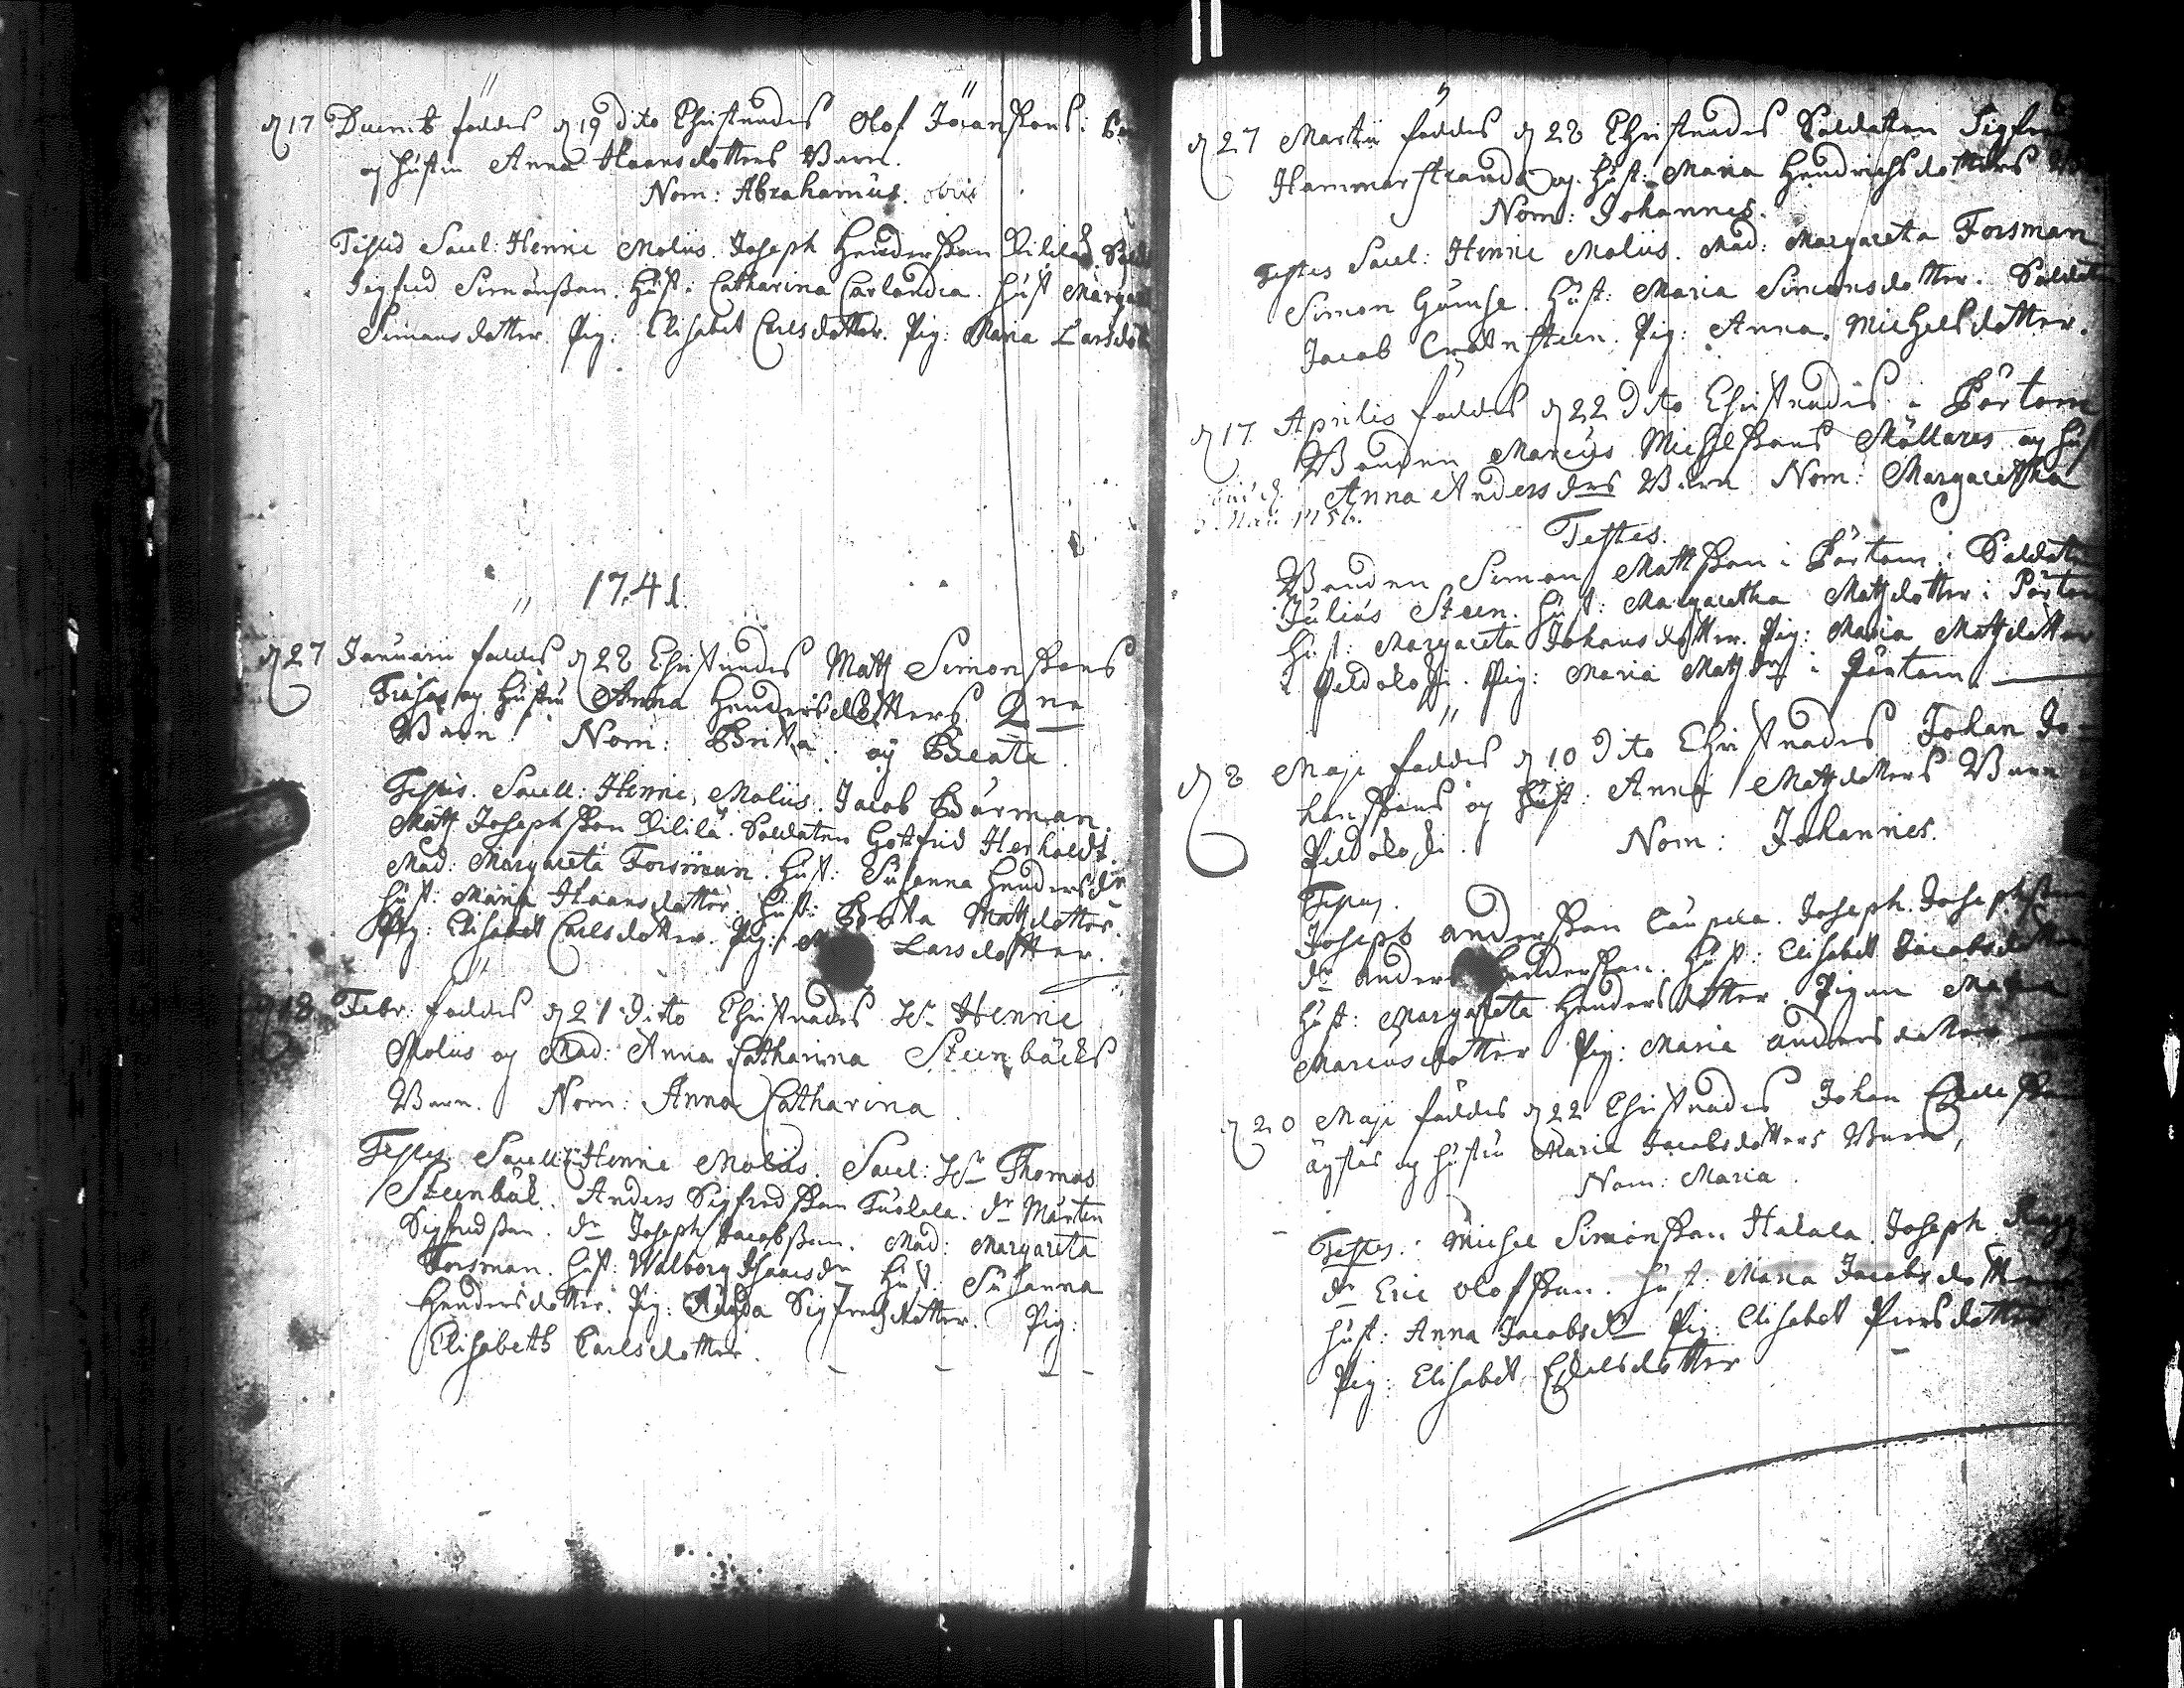 d 17 Decemb föddes d 19 dito Christnades Olof Jöranssons
og hustru Anna Hansdotters Barn.
Nom: Abrahamus. obiit
Testes Sacel: Henric Molius. Joseph Hendersson Lillilä
Sigfred Simonsson. Hust: Catharina Carlandra. Hust Margar
Simonsdotter. Pig: Elisabet Carlsdotter. Pig: Maria Larsdott
1741.
d 27 Januarii föddes d 28 Christnades Matz Simonssons
og hustru Anna Hendersdotters 2ne
Barn. Nom: Brita. og Beata.
Testes. Sacell: Henric Molius. Jacob Burman.
Matz Josephsson Lillilä. Soldaten Gotfrid
Mad: Margareta Forsman. Hust: Susanna Hendersdr
Hust: Maria Hansdotter. Hust: Brita Matzdotter.
Pig: Elisabet Carlsdotter. Pig: Larsdotter.
d 18 Febr. föddes d 21 dito Christnades Hr Henric
Molius og Mad: Anna Catharina Steenbäcks
Barn. Nom: Anna Catharina.
Testes. Sacell: Henric Molius. Sacel: Hr Thomas
Steenbäck. Anders Sigfredsson dr Mårten
Sigfredsson. dr Joseph Jacobsson. Mad: Margareta
Forsman. Hust: Walborg Isaacsdr Hust: Susanna
Hendersdotter. Pig: Sigfredsdotter. Pig:
Elisabeth Carlsdotter.
d 27 Martii föddes d 28 Christnades Soldaten Sigfre
Hammarstrands og Hust: Maria Hendrichsdotters
Nom: Johannes.
Testes Sacel: Henric Molius. Mad: Margareta Forsman
Simon Hust: Maria Simonsdotter. Soldat
Jacob Pig: Anna Michelsdotter.
d 17 Aprilis föddes d 22 dito Christnades i Pörtom
Bonden Marcus Michelssons Möllares og hus
Anna Andersdrs Barn Nom: Margaretha
1756.
Testes.
Bonden Simon Mattsson i Pörtom. Soldaten
Julius Steen. Hust: Margaretha Matzdotter i Pörtom
Hust: Margareta Johansdotter. Pig: Maria Matzdotter
i Pig: Maria Matzdr i Pörtom.
d 8 Maji föddes d 10 dito Christnades Johan Jo-
hanssons og Hust: Anna Matzdotters Barn
Nom: Johannes.
Testes.
Joseph Andersson Caupila. Joseph Josephsson
dr Anders Hendersson. Hust: Elisabet Jacobsdotter
Hust: Margareta Hendersdotter. Pigan Maria
Marcusdotter Pig: Maria Andersdotter
d 20 Maji föddes d 22 Christnades Johan
og hustru Maria Jacobsdotters Barn,
Nom: Maria.
Testes. Michel Simonsson Halala. Joseph
dr Eric Olofsson. Hust: Maria Jacobsdotter
Hust: Anna Jacobsdr Pig: Elisabet Piersdotter
Pig: Elisabet